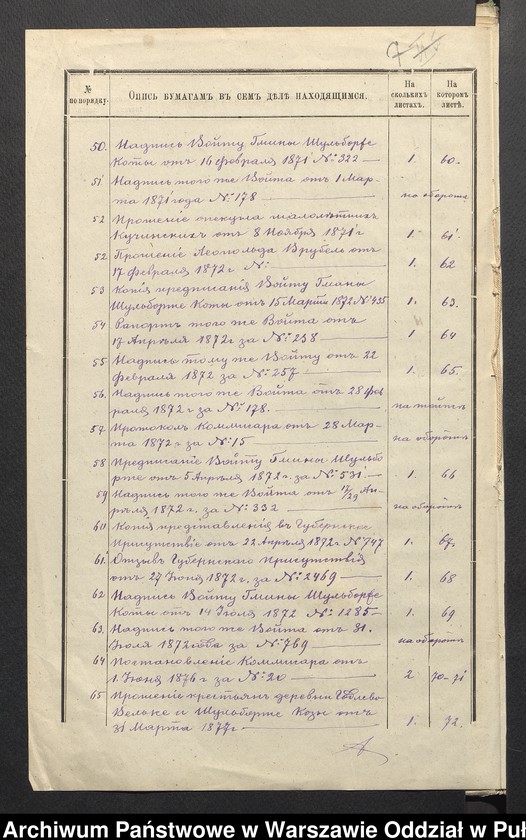 № по порядку.
Опись бумагамъ въ семъ дѣлѣ находящимся.
На сколькихъ листахъ.
На которомъ листѣ.
50. Надпись Войту Гмины Шульборже
Коты отъ 16 февраля 1871 № 322 — 1. 60.
51 Надпись того же Войта отъ 1 Мар-
та 1871 года № 178 — на оборотѣ
52 Прошеніе опекуна малолѣтнихъ
Кучинскихъ отъ 8 Ноября 1871 г 1. 61.
52 Прошеніе Леопольда Врубель отъ
17 февраля 1872 г № — 1. 62
53 Копія предписанія Войту Гмины
Шульборже Коты отъ 15 Марта 1872 № 435 1. 63.
54 Рапортъ того же Войта отъ
17 Апрѣля 1872 г за № 238 — 1 64
55 Надпись тому же Войту отъ 22
февраля 1872 за № 257 — 1. 65.
56. Надпись того же Войта отъ 28 фев
раля 1872 г за № 178. — на
57. Протоколъ Коммисара отъ 28 Мар-
та 1872 г за № 15 — на оборотѣ
58 Предписаніе Войту Гмины Шульбо
рже отъ 5 Апрѣля 1872 г. за № 531 — 1. 66
59 Надпись того же Войта отъ 17/29 Ап-
рѣля 1872 г. за № 332 — на оборотѣ
60 Копія представленія въ Губернское
Присутствіе отъ 22 Апрѣля 1872 г № 747 1. 67.
61. Отзывъ Губернскаго Присутствія
отъ 27 Іюня 1872 г. за № 2469 — 1. 68
62 Надпись Войту Гмины Шульборже
Коты отъ 14 Іюля 1872 № 1285 — 1. 69
63. Надпись того же Войта отъ 31.
Іюля 1872 года за № 769 — на оборотѣ
64 Постановленіе Коммисара отъ
1. Іюня 1876 г за № 20 — 2 70-71
65 Прошеніе крестьянъ деревни
Вельке и Шульборже Козы отъ
31 Марта 1877 г — 1. 72.
Archiwum Państwowe w Warszawie Oddział w Puł